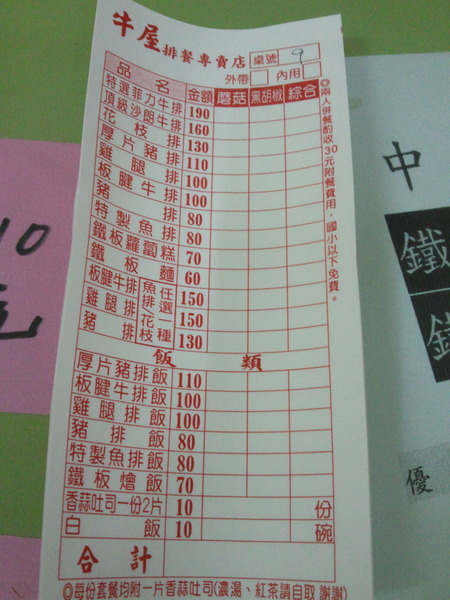 牛屋排餐專賣店 桌號 9
外帶 內用
品名 金額 蘑菇 黑胡椒 綜合
特選菲力牛排 190
頂級沙朗牛排 160
花枝排 130
厚片豬排 110
雞腿排 100
板腱牛排 100
豬排 80
特製魚排 80
鐵板蘿蔔糕 70
鐵板麵 60
板腱牛排 魚排 任選一種 150
雞腿排 花枝 150
豬排 130
飯類
厚片豬排飯 110
板腱牛排飯 100
雞腿排飯 100
豬排飯 80
特製魚排飯 80
鐵板燴飯 70
香蒜吐司一份2片 10 份
白飯 10 碗
合計
◎每份套餐均附一片香蒜吐司(濃湯、紅茶請自取 謝謝)
◎兩人併餐酌收30元附餐費用,國小以下免費。
10
元
中
鐵
優